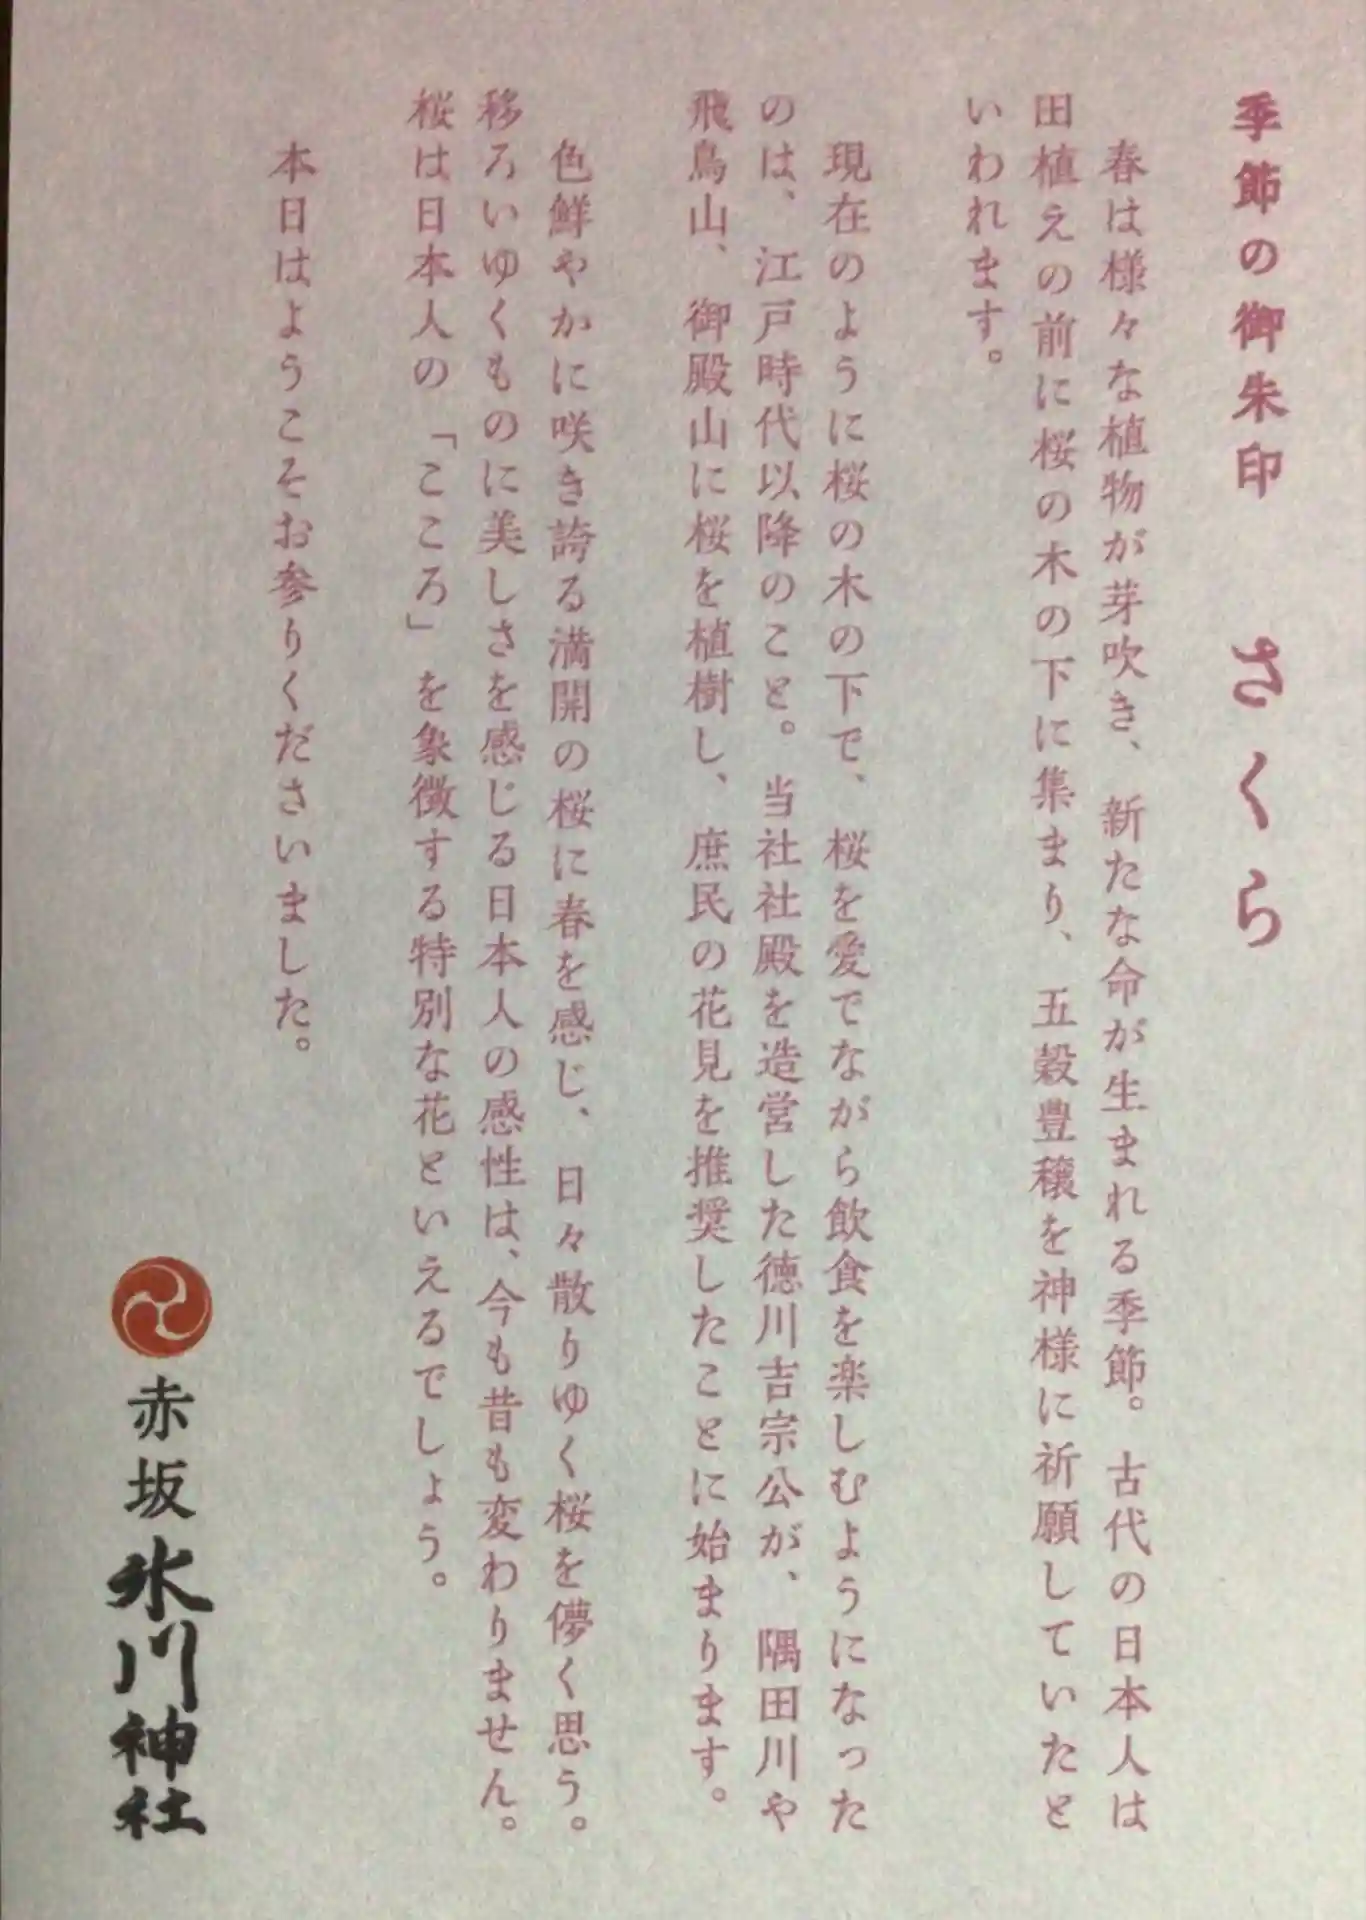 季節の御朱印　さくら
春は様々な植物が芽吹き、新たな命が生まれる季節。古代の日本人は
田植えの前に桜の木の下に集まり、五穀豊穣を神様に祈願していたと
いわれます。
現在のように桜の木の下で、桜を愛でながら飲食を楽しむようになった
のは、江戸時代以降のこと。当社社殿を造営した徳川吉宗公が、隅田川や
飛鳥山、御殿山に桜を植樹し、庶民の花見を推奨したことに始まります。
色鮮やかに咲き誇る満開の桜に春を感じ、日々散りゆく桜を儚く思う。
移ろいゆくものに美しさを感じる日本人の感性は、今も昔も変わりません。
桜は日本人の「こころ」を象徴する特別な花といえるでしょう。
本日はようこそお参りくださいました。
赤坂氷川神社